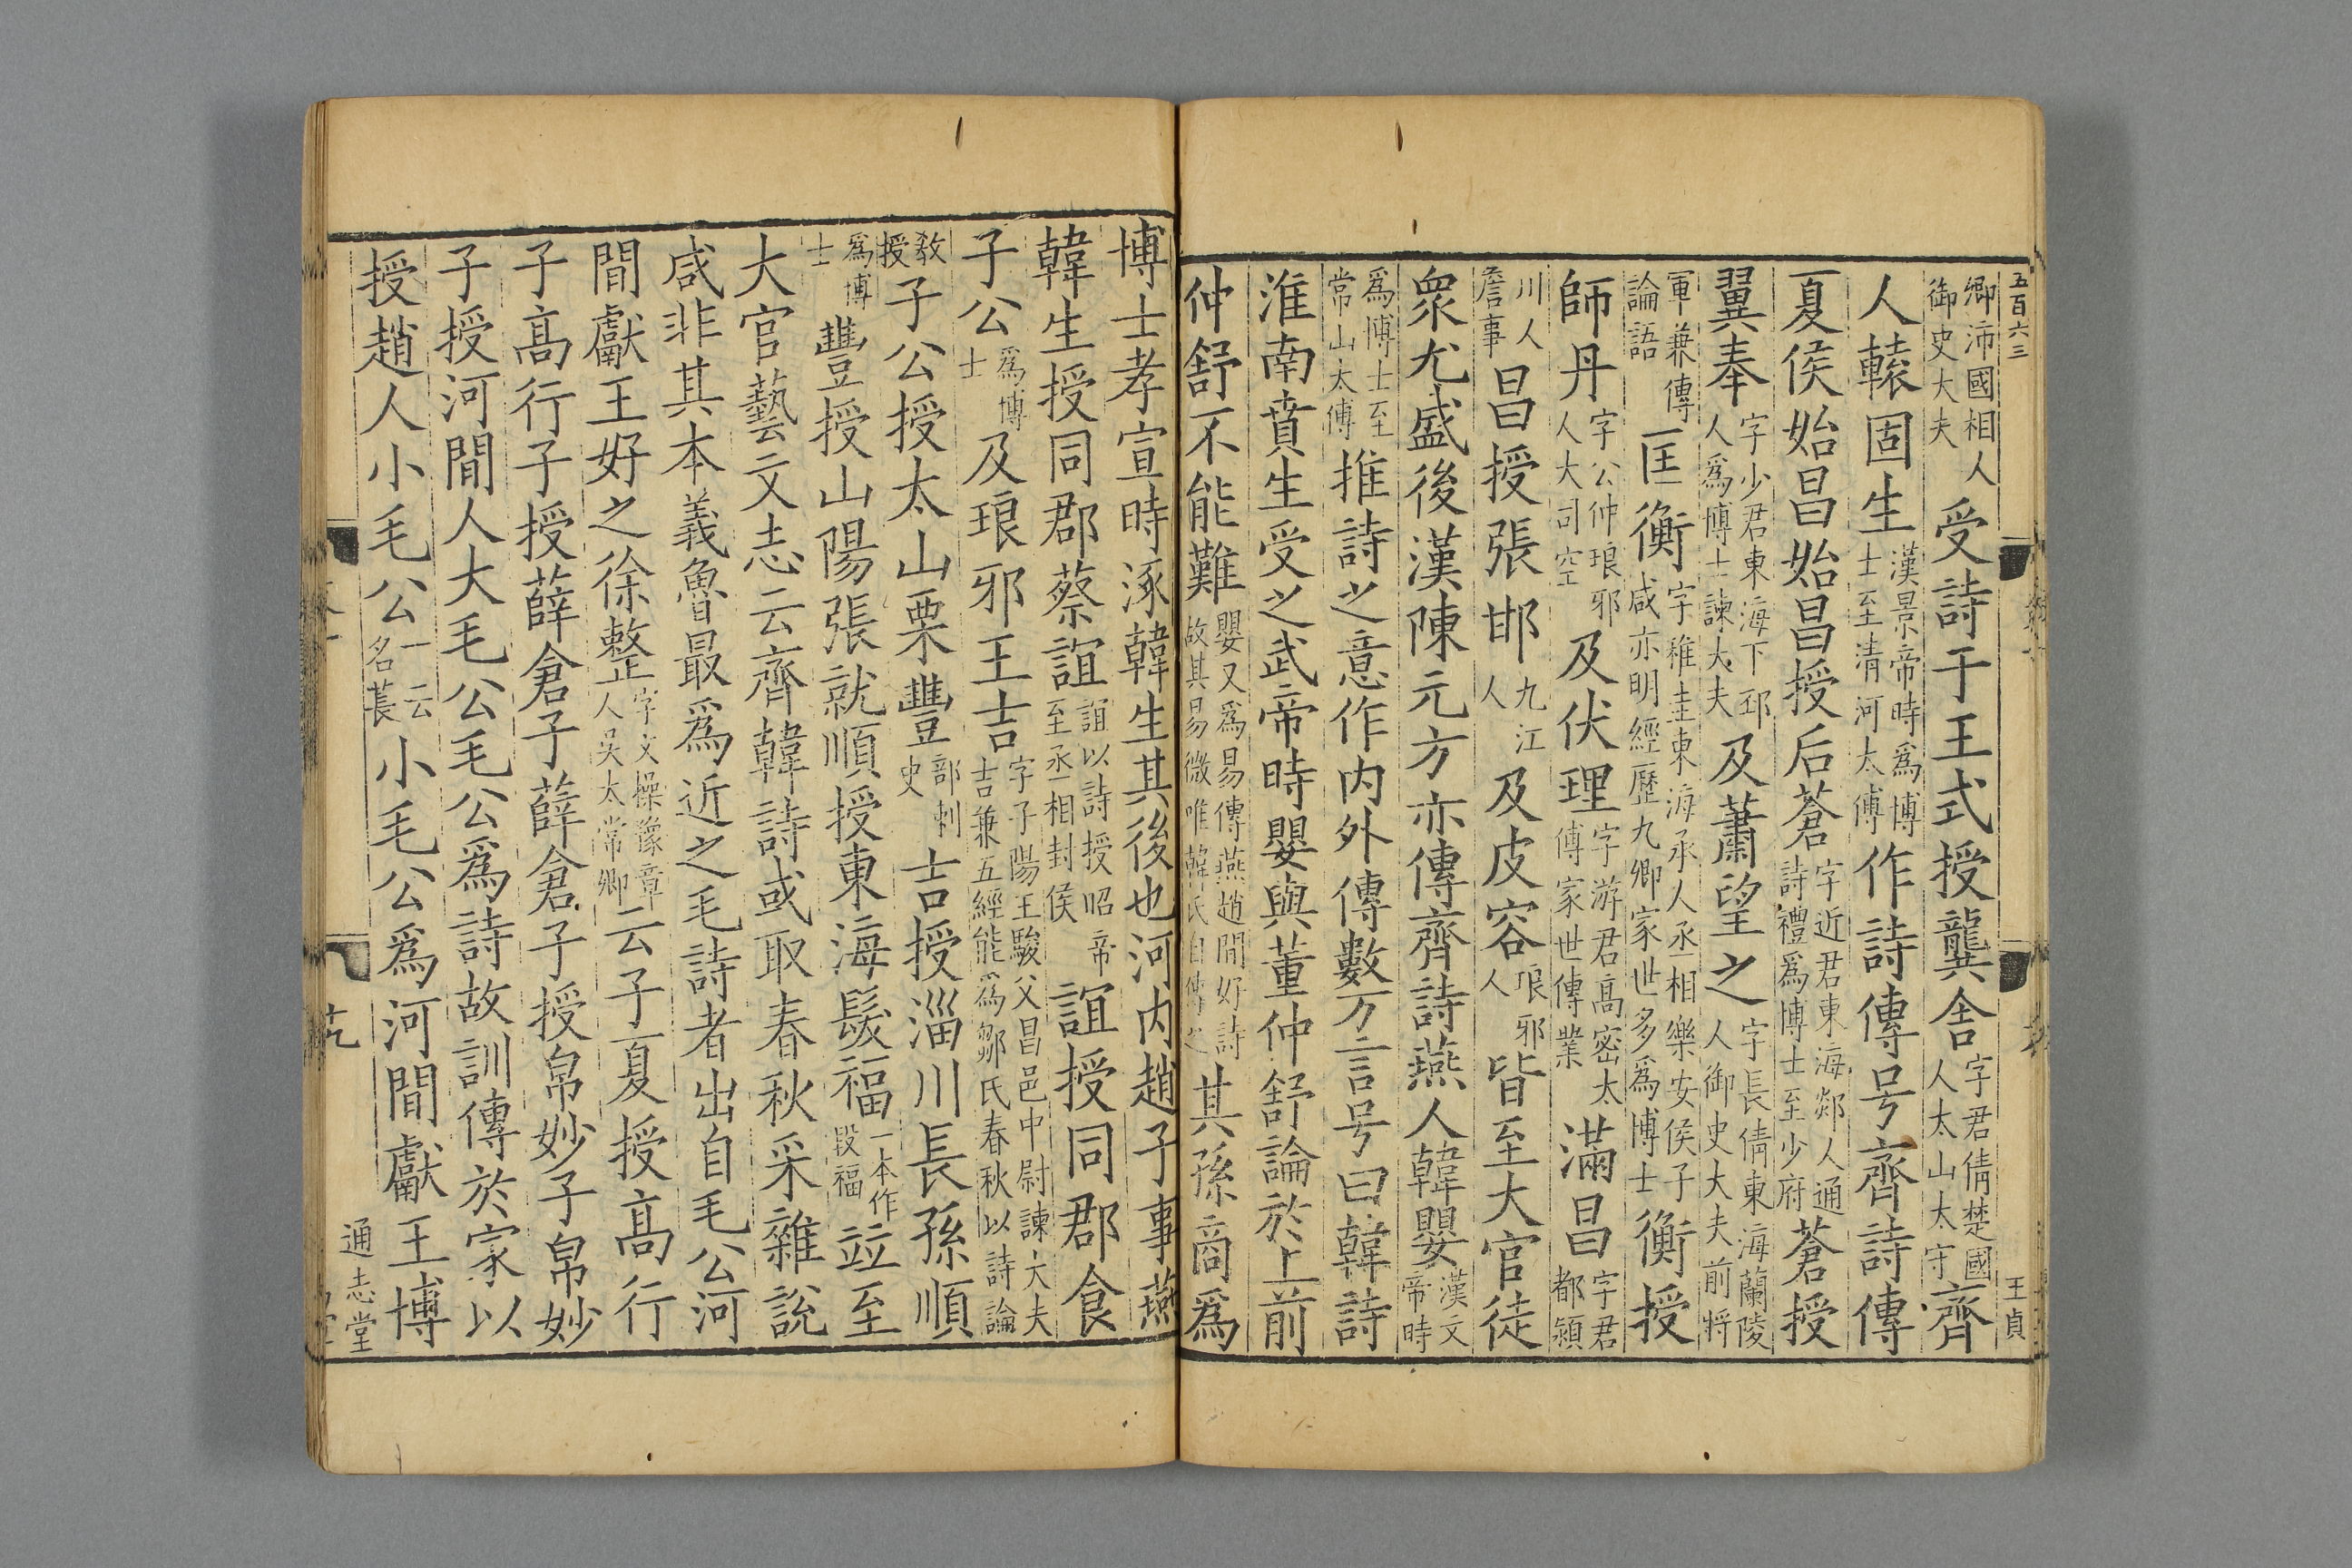 五百六三
卿沛國相人御史大夫受詩于王式授龔舍字君倩楚國人太山太守齊
人轅固生漢景帝時爲博士至清河太傅作詩傳号齊詩傳
夏侯始昌始昌授后蒼字近君東海郯人通詩禮爲博士至少府蒼授
翼奉字少君東海下邳人爲博士諫大夫及蕭望之字長倩東海蘭陵人御史大夫前將
軍兼傳論語匡衡字稚圭東海承人丞相樂安侯子咸亦明經歷九卿家世多爲博士衡授
師丹字公仲琅邪人大司空及伏理字游君高密太傅家世傳業滿昌字君都潁
川人詹事昌授張邯九江人及皮容琅邪人皆至大官徒
衆尤盛後漢陳元方亦傳齊詩燕人韓嬰漢文帝時
爲博士至常山太傅推詩之意作内外傳數万言号曰韓詩
淮南賁生受之武帝時嬰與董仲舒論於上前
仲舒不能難嬰又爲易傳燕趙間好詩故其易微唯韓氏自傳之其孫商爲
王貞
博士孝宣時涿韓生其後也河内趙子事燕
韓生授同郡蔡誼誼以詩授昭帝至丞相封侯誼授同郡食
子公爲博士及琅邪王吉字子陽王駿父昌邑中尉諫大夫吉兼五經能爲鄒氏春秋以詩論
教授子公授太山栗豐部刺史吉授淄川長孫順
爲博士豐授山陽張就順授東海髮福一本作段福竝至
大官藝文志云齊韓詩或取春秋采雜說
咸非其本義魯最爲近之毛詩者出自毛公河
間獻王好之徐整字文操豫章人吳太常卿云子夏授高行
子高行子授薛倉子薛倉子授帛妙子帛妙
子授河間人大毛公毛公爲詩故訓傳於家以
授趙人小毛公一云名萇小毛公爲河間獻王博
通志堂